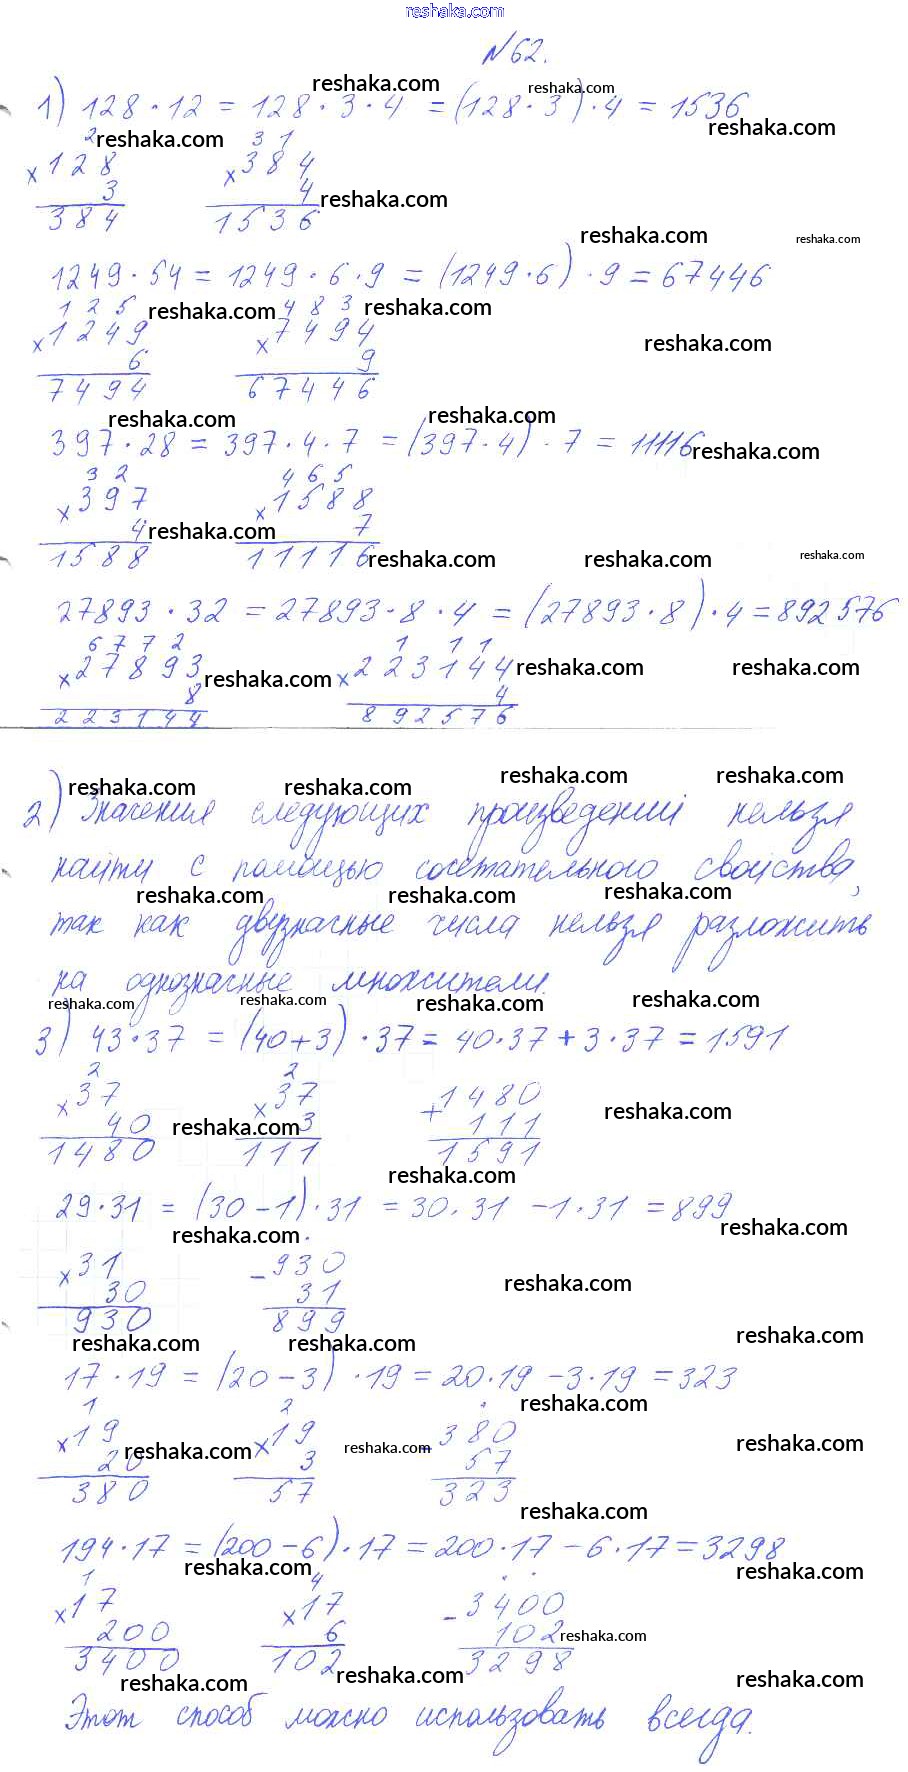 reshaka.com
№62.
1) 128 · 12 = 128 · 3 · 4 = (128 · 3) · 4 = 1536
2 3 1
× 128 × 384
3 4
384 1536
1249 · 54 = 1249 · 6 · 9 = (1249 · 6) · 9 = 67446
1 2 5 4 8 3
× 1249 × 7494
6 9
7494 67446
397 · 28 = 397 · 4 · 7 = (397 · 4) · 7 = 11116
3 2 4 6 5
× 397 × 1588
4 7
1588 11116
27893 · 32 = 27893 · 8 · 4 = (27893 · 8) · 4 = 892576
6 7 7 2 1 1 1
× 27893 × 223144
8 4
223144 892576
2) Значения следующих произведений нельзя
найти с помощью сочетательного свойства,
так как двузначные числа нельзя разложить
на однозначные множители.
3) 43 · 37 = (40 + 3) · 37 = 40 · 37 + 3 · 37 = 1591
2 2
× 37 × 37 + 1480
40 3 111
1480 111 1591
29 · 31 = (30 - 1) · 31 = 30 · 31 - 1 · 31 = 899
× 31 - 930
30 31
930 899
17 · 19 = (20 - 3) · 19 = 20 · 19 - 3 · 19 = 323
1 2
× 19 × 19 - 380
20 3 57
380 57 323
194 · 17 = (200 - 6) · 17 = 200 · 17 - 6 · 17 = 3298
1 4
× 17 × 17 - 3400
200 6 102
3400 102 3298
Этот способ можно использовать всегда.